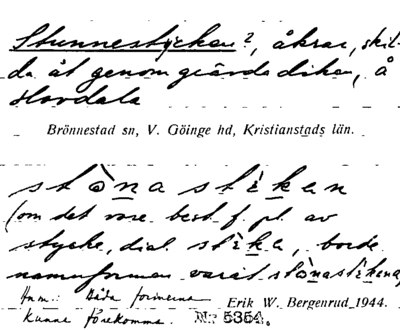 Stunnestycken?, åkrar, skil-
da åt genom gärdsdiken, å
Hovdala
Brönnestad sn, V. Göinge hd, Kristianstads län.
stònastèkan
(om det vore best. f. pl. av
stycke, dial. stèka, borde
namnformen varit stònastèkena)
Anm.: Båda formerna
kunna förekomma.
Erik W. Bergenrud 1944.
Nr 5354.